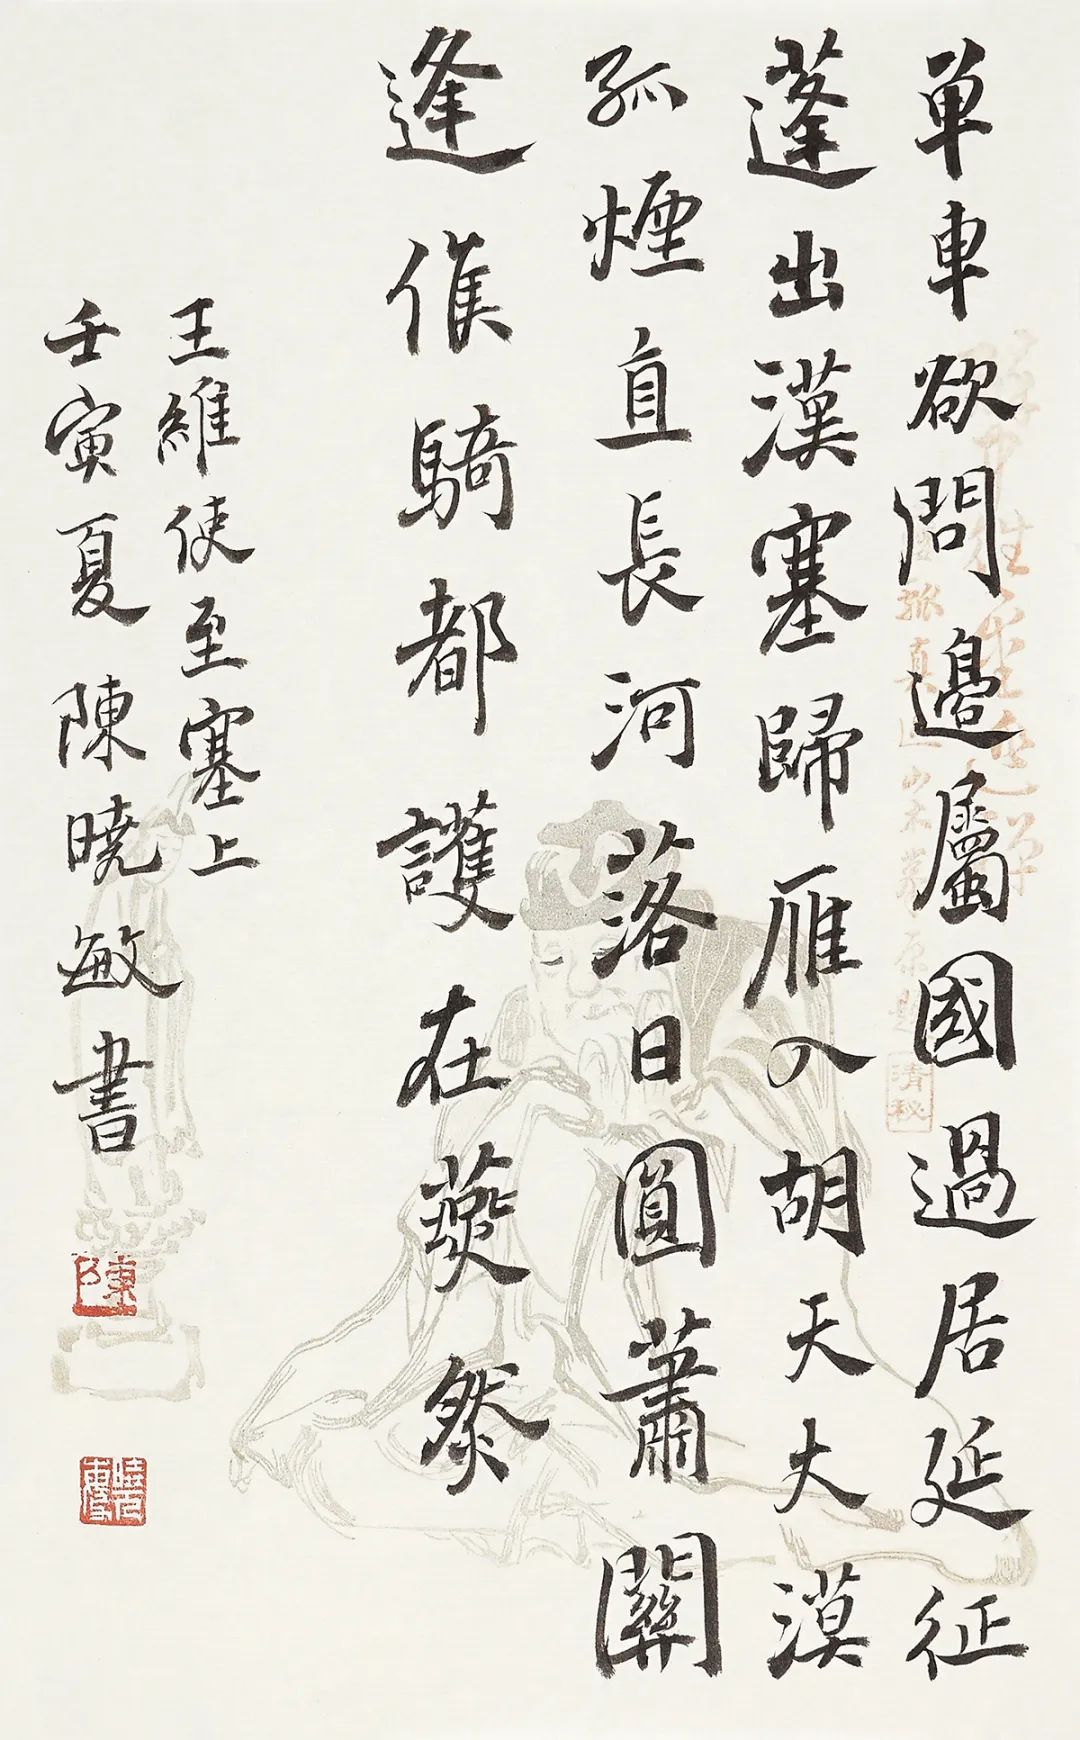 單車欲問邊屬國過居延征
蓬出漢塞歸雁入胡天大漠
孤煙直長河落日圓蕭關
逢候騎都護在燕然
王維使至塞上
壬寅夏陳曉敏書
陳
清秘